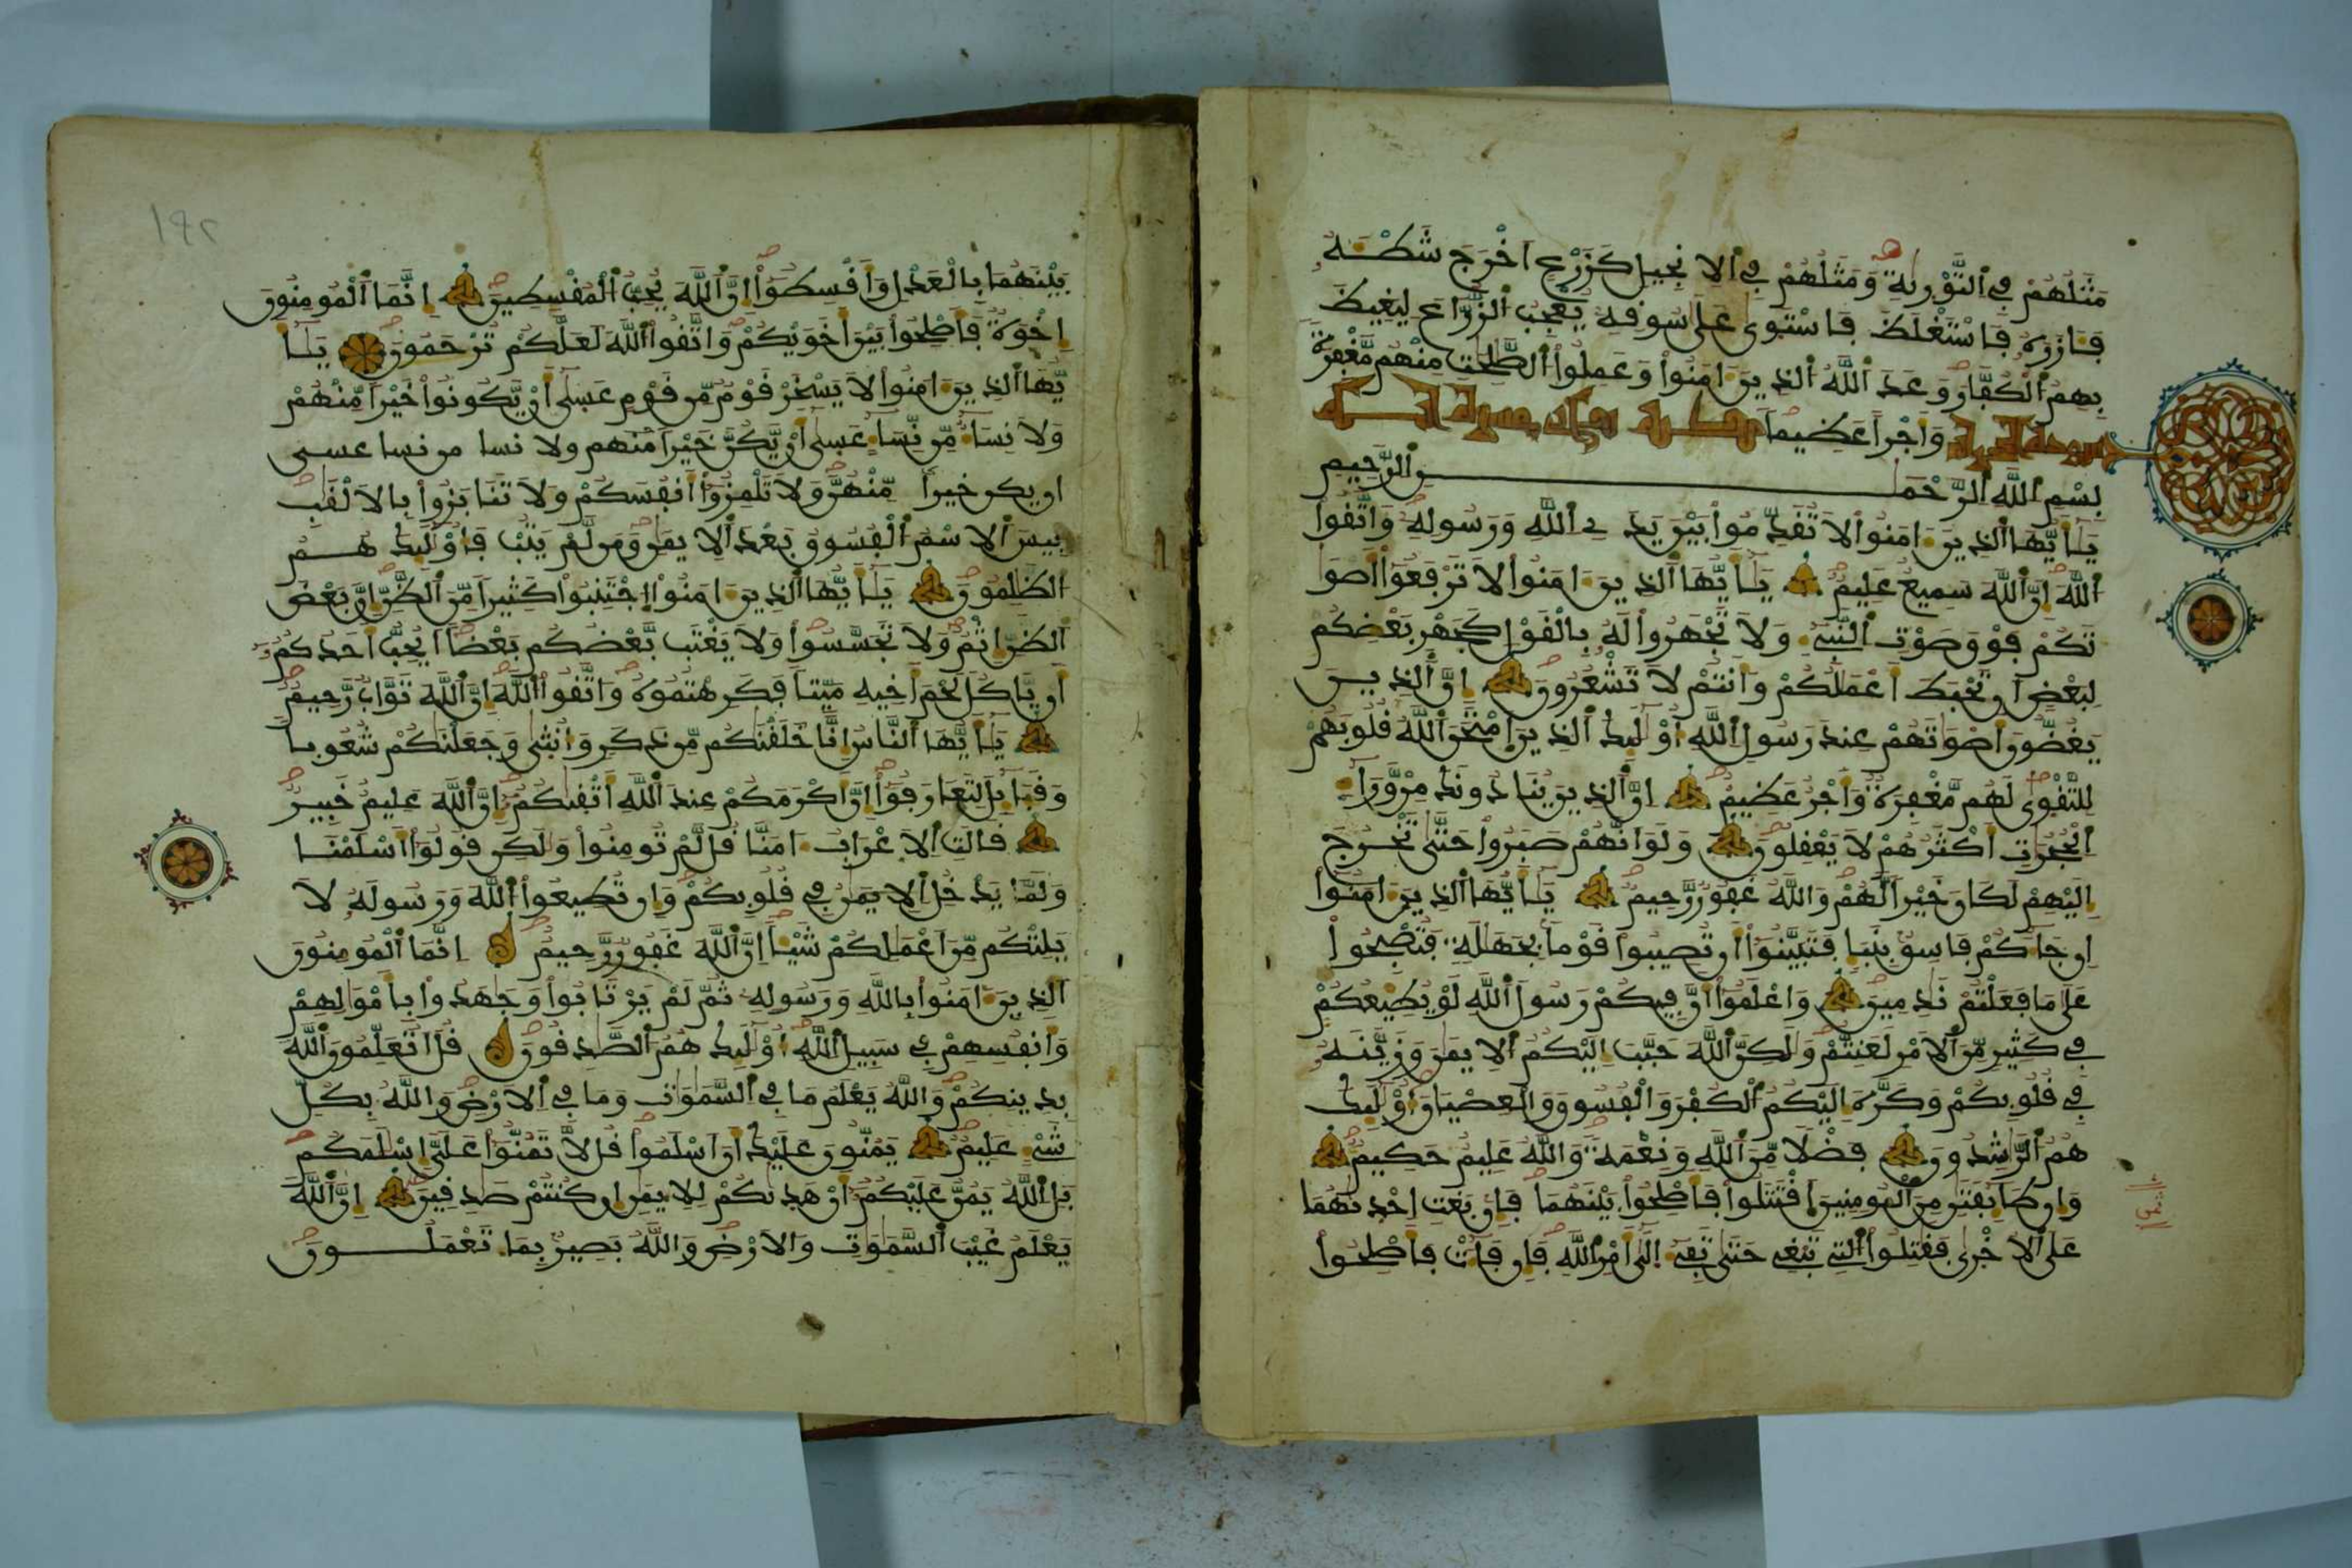 مَثَلُهُمْ فِي ٱلتَّوْرِيٰةِ وَمَثَلُهُمْ فِي ٱلِانجِيلِ كَزَرْعٍ اَخْرَجَ شَطْـَٔهُ
فَـَٔازَرَهُ فَاسْتَغْلَظَ فَاسْتَوىٰ عَلَىٰ سُوقِهِ يُعْجِبُ ٱلزُّرَّاعَ لِيَغِيظَ
بِهِمُ ٱلْكُفَّارَ وَعَدَ ٱللَّهُ ٱلذِينَ ءَامَنُواْ وَعَمِلُواْ ٱلصَّٰلِحَٰتِ مِنْهُم مَّغْفِرَةً
وَأَجْراً عَظِيماً سورة الحجرات
بِسْمِ ٱللَّهِ ٱلرَّحْمَٰنِ ٱلرَّحِيمِ
يَٰأَيُّهَا ٱلذِينَ ءَامَنُواْ لَا تُقَدِّمُواْ بَيْنَ يَدَيِ ٱللَّهِ وَرَسُولِهِ وَاتَّقُواْ
ٱللَّهَ إِنَّ ٱللَّهَ سَمِيعٌ عَلِيمٌ يَٰأَيُّهَا ٱلذِينَ ءَامَنُواْ لَا تَرْفَعُواْ أَصْوَٰ
تَكُمْ فَوْقَ صَوْتِ ٱلنَّبِيءِ وَلَا تَجْهَرُواْ لَهُ بِالْقَوْلِ كَجَهْرِ بَعْضِكُمْ
لِبَعْضٍ أَن تَحْبَطَ أَعْمَٰلُكُمْ وَأَنتُمْ لَا تَشْعُرُونَ إِنَّ ٱلذِينَ
يَغُضُّونَ أَصْوَٰتَهُمْ عِندَ رَسُولِ ٱللَّهِ أُوْلَٰئِكَ ٱلذِينَ ٱمْتَحَنَ ٱللَّهُ قُلُوبَهُمْ
لِلتَّقْوىٰ لَهُم مَّغْفِرَةٌ وَأَجْرٌ عَظِيمٌ إِنَّ ٱلذِينَ يُنَادُونَكَ مِنْ وَّرَآءِ
ٱلْحُجُرَٰتِ أَكْثَرُهُمْ لَا يَعْقِلُونَ وَلَوَ اَنَّهُمْ صَبَرُواْ حَتَّىٰ تَخْرُجَ
إِلَيْهِمْ لَكَانَ خَيْراً لَّهُمْ وَاللَّهُ غَفُورٌ رَّحِيمٌ يَٰأَيُّهَا ٱلذِينَ ءَامَنُواْ
إِن جَآءَكُمْ فَاسِقٌ بِنَبَإٍ فَتَبَيَّنُواْ أَن تُصِيبُواْ قَوْماً بِجَهَٰلَةٍ فَتُصْبِحُواْ
عَلَىٰ مَا فَعَلْتُمْ نَٰدِمِينَ وَاعْلَمُواْ أَنَّ فِيكُمْ رَسُولَ ٱللَّهِ لَوْ يُطِيعُكُمْ
فِي كَثِيرٍ مِّنَ ٱلَامْرِ لَعَنِتُّمْ وَلَٰكِنَّ ٱللَّهَ حَبَّبَ إِلَيْكُمُ ٱلِايمَٰنَ وَزَيَّنَهُ
فِي قُلُوبِكُمْ وَكَرَّهَ إِلَيْكُمُ ٱلْكُفْرَ وَالْفُسُوقَ وَالْعِصْيَانَ أُوْلَٰئِكَ
هُمُ ٱلرَّٰشِدُونَ فَضْلاً مِّنَ ٱللَّهِ وَنِعْمَةً وَاللَّهُ عَلِيمٌ حَكِيمٌ
وَإِن طَآئِفَتَٰنِ مِنَ ٱلْمُومِنِينَ ٱقْتَتَلُواْ فَأَصْلِحُواْ بَيْنَهُمَا فَإِنۢ بَغَتِ اِحْدىٰهُمَا
عَلَى ٱلُاخْرىٰ فَقَٰتِلُواْ ٱلتِي تَبْغِي حَتَّىٰ تَفِيءَ إِلَىٰ أَمْرِ ٱللَّهِ فَإِن فَآءَتْ فَأَصْلِحُواْ
ثمن
بَيْنَهُمَا بِالْعَدْلِ وَأَقْسِطُواْ إِنَّ ٱللَّهَ يُحِبُّ ٱلْمُقْسِطِينَ إِنَّمَا ٱلْمُومِنُونَ
إِخْوَةٌ فَأَصْلِحُواْ بَيْنَ أَخَوَيْكُمْ وَاتَّقُواْ ٱللَّهَ لَعَلَّكُمْ تُرْحَمُونَ يَٰأَ
يُّهَا ٱلذِينَ ءَامَنُواْ لَا يَسْخَرْ قَوْمٌ مِّن قَوْمٍ عَسىٰ أَنْ يَّكُونُواْ خَيْراً مِّنْهُمْ
وَلَا نِسَآءٌ مِّن نِّسَآءٍ عَسىٰ أَنْ يَّكُنَّ خَيْراً منهم ولا نسا من نسا عسى
ان يكن خيراً مِّنْهُنَّ وَلَا تَلْمِزُواْ أَنفُسَكُمْ وَلَا تَنَابَزُواْ بِالَالْقَٰبِ
بِيسَ ٱلِاسْمُ ٱلْفُسُوقُ بَعْدَ ٱلِايمَٰنِ وَمَن لَّمْ يَتُبْ فَأُوْلَٰئِكَ هُمُ
ٱلظَّٰلِمُونَ يَٰأَيُّهَا ٱلذِينَ ءَامَنُواْ ٱجْتَنِبُواْ كَثِيراً مِّنَ ٱلظَّنِّ إِنَّ بَعْضَ
ٱلظَّنِّ إِثْمٌ وَلَا تَجَسَّسُواْ وَلَا يَغْتَب بَّعْضُكُم بَعْضاً أَيُحِبُّ أَحَدُكُمُ
أَن يَّاكُلَ لَحْمَ أَخِيهِ مَيِّتاً فَكَرِهْتُمُوهُ وَاتَّقُواْ ٱللَّهَ إِنَّ ٱللَّهَ تَوَّابٌ رَّحِيمٌ
يَٰأَيُّهَا ٱلنَّاسُ إِنَّا خَلَقْنَٰكُم مِّن ذَكَرٍ وَأُنثىٰ وَجَعَلْنَٰكُمْ شُعُوباً
وَقَبَآئِلَ لِتَعَارَفُواْ إِنَّ أَكْرَمَكُمْ عِندَ ٱللَّهِ أَتْقىٰكُمْ إِنَّ ٱللَّهَ عَلِيمٌ خَبِيرٌ
قَالَتِ ٱلَاعْرَابُ ءَامَنَّا قُل لَّمْ تُومِنُواْ وَلَٰكِن قُولُواْ أَسْلَمْنَا
وَلَمَّا يَدْخُلِ ٱلِايمَٰنُ فِي قُلُوبِكُمْ وَإِن تُطِيعُواْ ٱللَّهَ وَرَسُولَهُ لَا
يَلِتْكُم مِّنَ اَعْمَٰلِكُمْ شَيْئاً إِنَّ ٱللَّهَ غَفُورٌ رَّحِيمٌ إِنَّمَا ٱلْمُومِنُونَ
ٱلذِينَ ءَامَنُواْ بِاللَّهِ وَرَسُولِهِ ثُمَّ لَمْ يَرْتَابُواْ وَجَٰهَدُواْ بِأَمْوَٰلِهِمْ
وَأَنفُسِهِمْ فِي سَبِيلِ ٱللَّهِ أُوْلَٰئِكَ هُمُ ٱلصَّٰدِقُونَ قُلَ اَتُعَلِّمُونَ ٱللَّهَ
بِدِينِكُمْ وَاللَّهُ يَعْلَمُ مَا فِي ٱلسَّمَٰوَٰتِ وَمَا فِي ٱلَارْضِ وَاللَّهُ بِكُلِّ
شَيْءٍ عَلِيمٌ يَمُنُّونَ عَلَيْكَ أَنَ اَسْلَمُواْ قُل لَّا تَمُنُّواْ عَلَيَّ إِسْلَٰمَكُم
بَلِ ٱللَّهُ يَمُنُّ عَلَيْكُمُ أَنْ هَدىٰكُمْ لِلِايمَٰنِ إِن كُنتُمْ صَٰدِقِينَ إِنَّ ٱللَّهَ
يَعْلَمُ غَيْبَ ٱلسَّمَٰوَٰتِ وَالَارْضِ وَاللَّهُ بَصِيرٌ بِمَا تَعْمَلُونَ